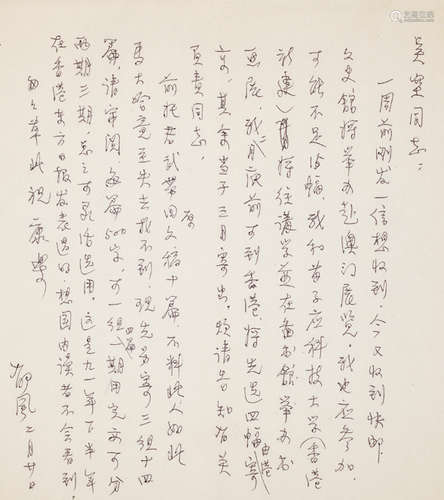 吴空同志：
一周前刚发一信想收到，今又收到快邮，
文史馆将举办赴澳门展览，我也应参加，
可能不足四幅，我和苗子应科技大学（香港
新建）将往讲学并在图书馆举办书
画展，我月底前可到香港，将先选四幅由港寄
京，其余当于三月寄出，烦请告知有关
负责同志。
前托君武带回文稿十篇，不料此人如此
马大哈竟至失去找不到，现先另寄三组十四
篇，请审阅，每篇500字，可一组四篇一期用完亦可分
两期三期，总之可灵活选用。这是九一年下半年
在香港东方日报发表过的，想国内读者不会看到。
匆匆草此祝 康
郁风 二月廿日